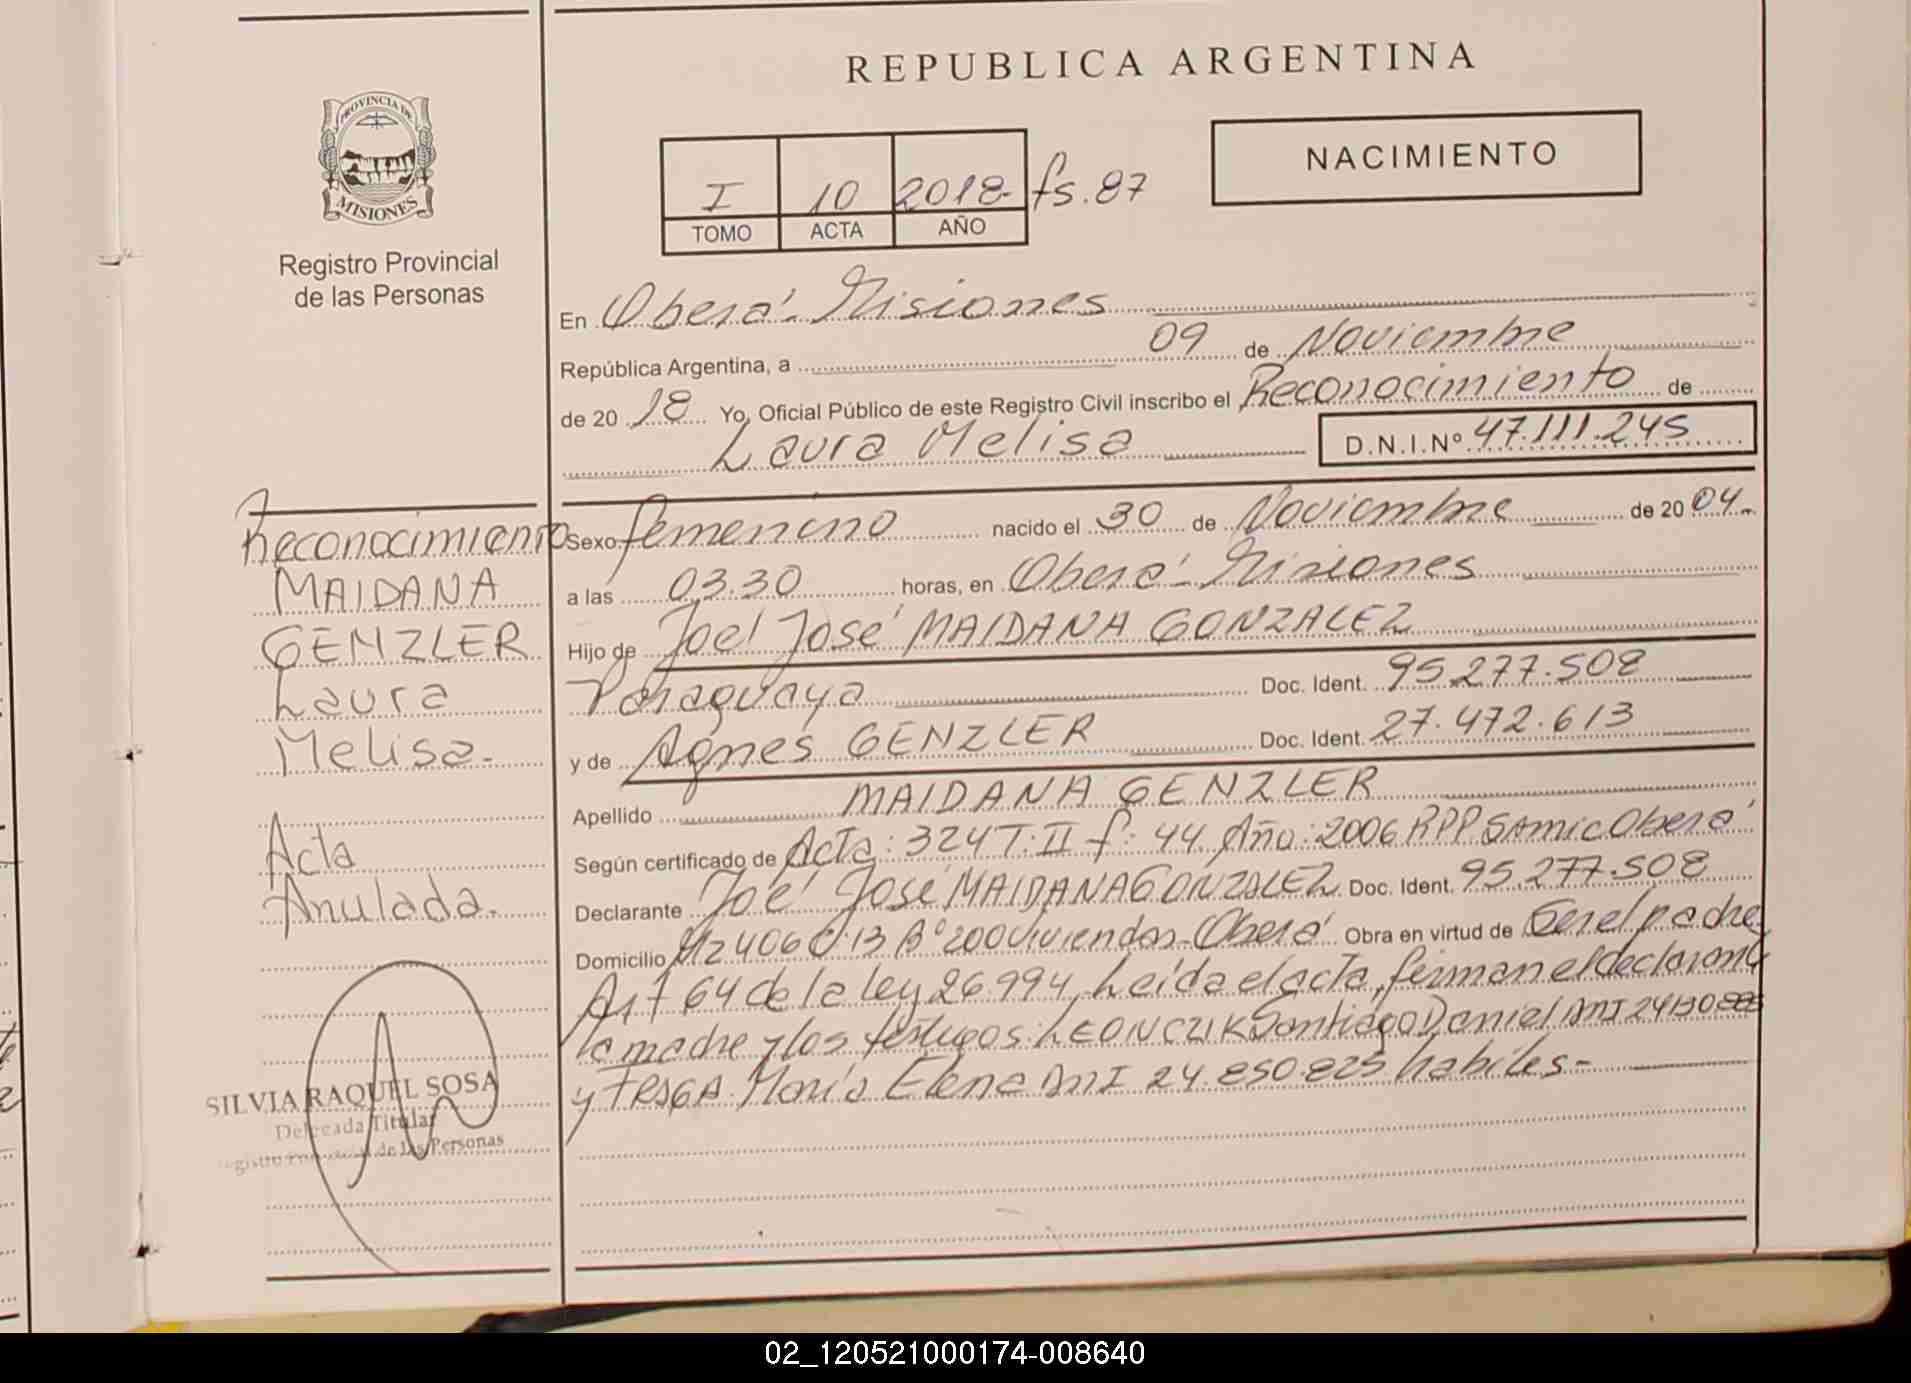 REPUBLICA ARGENTINA
PROVINCIA DE
MISIONES
Registro Provincial
de las Personas
NACIMIENTO
I 10 2018- fs. 87
TOMO ACTA AÑO
En Oberá - Misiones
República Argentina, a 09 de Noviembre
de 20 18 Yo, Oficial Público de este Registro Civil inscribo el Reconocimiento de
Laura Melisa D.N.I.Nº 47.111.245
Sexo femenino nacido el 30 de Noviembre de 20 04-
a las 03.30 horas, en Oberá - Misiones
Hijo de Joel José MAIDANA GONZALEZ
Paraguaya Doc. Ident. 95.277.508
y de Agnes GENZLER Doc. Ident. 27.472.613
Apellido MAIDANA GENZLER
Según certificado de Acta: 324 T: II f: 44 Año: 2006 RPP SAMIC Oberá
Declarante Joé José MAIDANA GONZALEZ Doc. Ident. 95.277.508
Domicilio Mz 406 C 13 Bº 200 Viviendas - Oberá Obra en virtud de Ser el padre
Art 64 de la ley 26.994, Leída el acta, firman el declarante
la madre y los testigos: LEONCZIK Santiago Daniel DNI
y María Elena DNI 24.850.825 habiles-
Reconocimiento
MAIDANA
GENZLER
Laura
Melisa.-
Acta
Anulada.-
SILVIA RAQUEL SOSA
Delegada Titular
Registro Provincial de las Personas
02_120521000174-008640